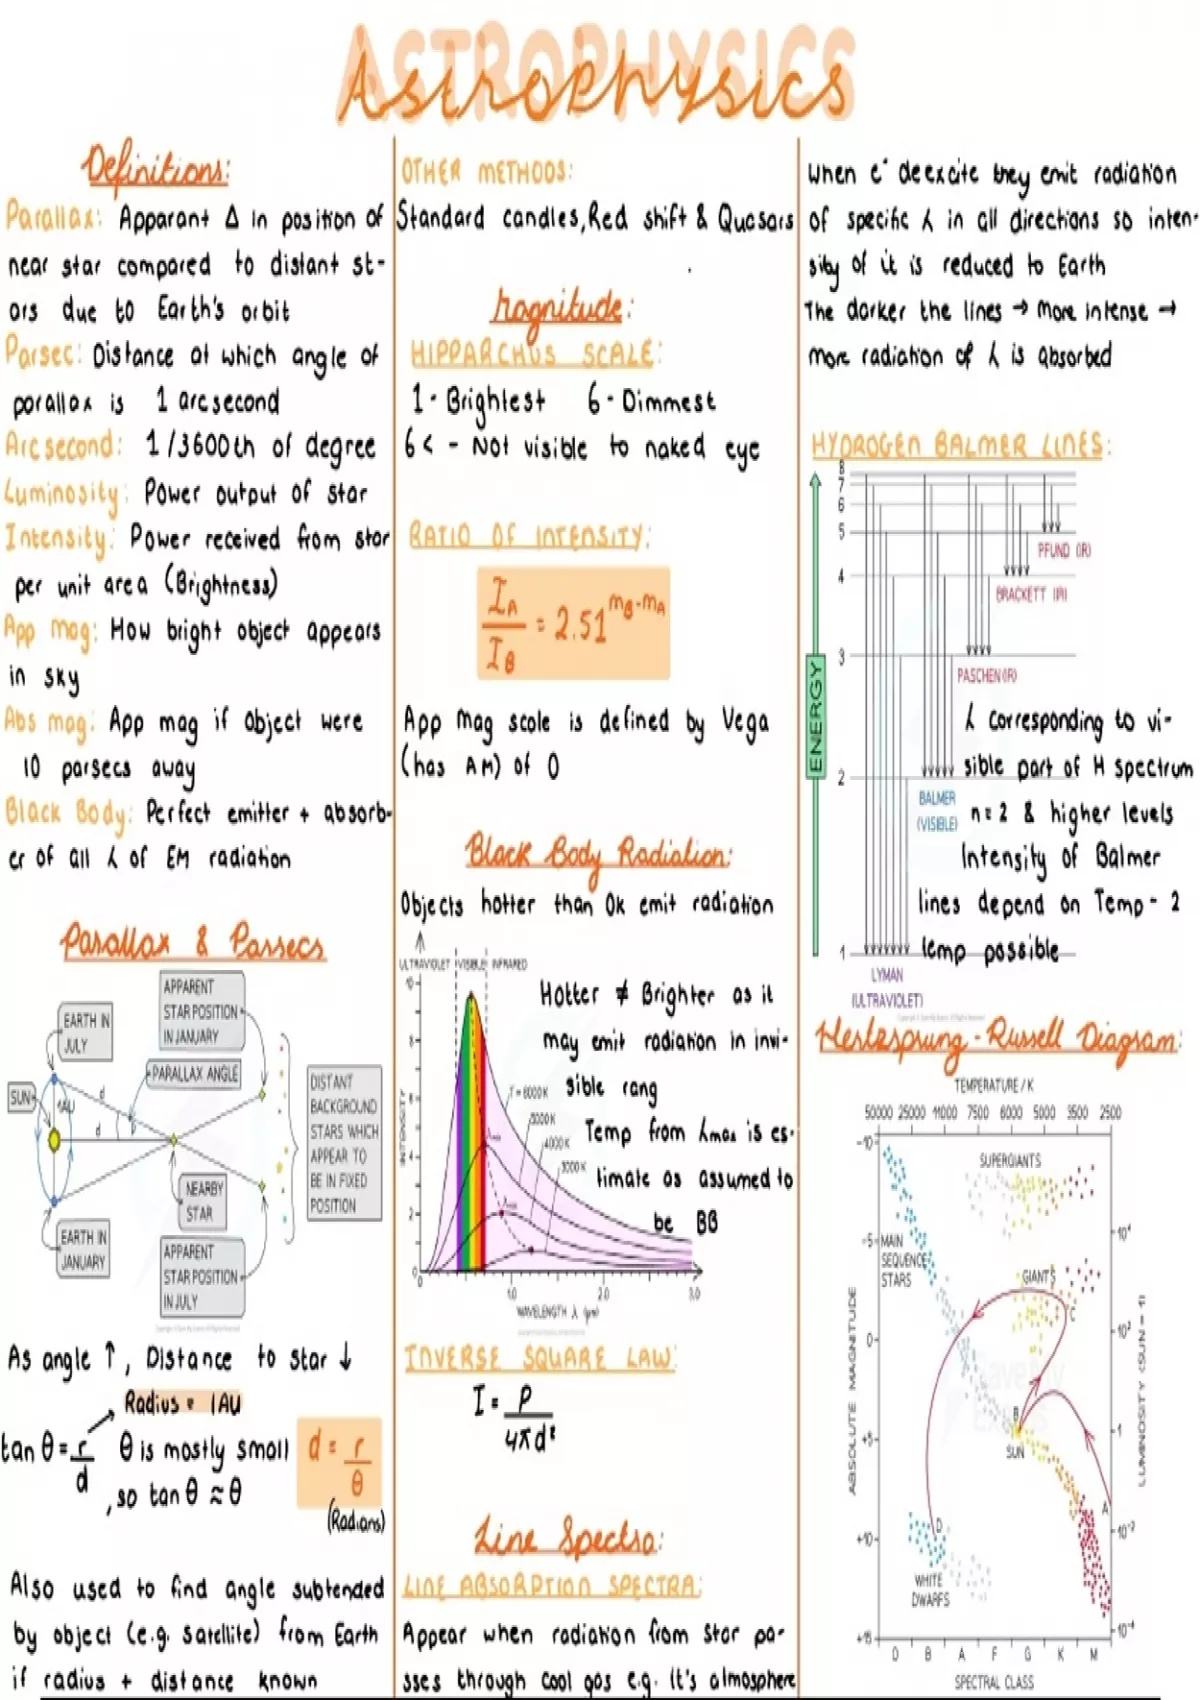 ASTROPHYSICS
Astrophysics
Definitions:
Parallax: Apparant Δ in position of
near star compared to distant st-
ars due to Earth's orbit
Parsec: Distance at which angle of
parallax is 1 arcsecond
Arcsecond: 1/3600th of degree
Luminosity: Power output of star
Intensity: Power received from star
per unit area (Brightness)
App mag: How bright object appears
in sky
Abs mag: App mag if object were
10 parsecs away
Black Body: Perfect emitter + absorb-
er of all λ of EM radiation
Parallax & Parsecs
APPARENT
STAR POSITION
IN JANUARY
EARTH IN
JULY
PARALLAX ANGLE
SUN
1AU
d
d
DISTANT
BACKGROUND
STARS WHICH
APPEAR TO
BE IN FIXED
POSITION
NEARBY
STAR
EARTH IN
JANUARY
APPARENT
STAR POSITION
IN JULY
As angle ↑, Distance to star ↓
Radius = 1AU
tan θ = r/d θ is mostly small
, so tan θ ≈ θ
d = r/θ
(Radians)
Also used to find angle subtended
by object (e.g. satellite) from Earth
if radius + distance known
OTHER METHODS:
Standard candles, Red shift & Quasars
Magnitude:
HIPPARCHUS SCALE:
1 - Brightest 6 - Dimmest
6 < - Not visible to naked eye
RATIO OF INTENSITY:
I_A/I_B = 2.51^(m_B-m_A)
App Mag scale is defined by Vega
(has AM) of 0
Black Body Radiation:
Objects hotter than 0k emit radiation
ULTRAVIOLET VISIBLE INFRARED
Hotter ≠ Brighter as it
may emit radiation in invi-
sible rang
Temp from λmax is es-
timate as assumed to
be BB
T = 6000K
5000K
4000K
3000K
λmax
λmax
INTENSITY
10
8
6
4
2
0
0 1.0 2.0 3.0
WAVELENGTH λ (μm)
INVERSE SQUARE LAW:
I = P/4πd²
Line Spectra:
LINE ABSORPTION SPECTRA:
Appear when radiation from star pa-
sses through cool gas e.g. It's atmosphere
When e⁻ deexcite they emit radiation
of specific λ in all directions so inten-
sity of it is reduced to Earth
The darker the lines → more intense →
more radiation of λ is absorbed
HYDROGEN BALMER LINES:
8
7
6
5
PFUND (IR)
4
BRACKETT (IR)
3
PASCHEN (IR)
ENERGY
2
BALMER
(VISIBLE)
1
LYMAN
(ULTRAVIOLET)
λ corresponding to vi-
sible part of H spectrum
n=2 & higher levels
Intensity of Balmer
lines depend on Temp - 2
temp possible
Hertzsprung-Russell Diagram:
TEMPERATURE / K
50000 25000 11000 7500 6000 5000 3500 2500
-10
SUPERGIANTS
10⁴
-5
MAIN
SEQUENCE
STARS
GIANTS
C
10²
0
ABSOLUTE MAGNITUDE
LUMINOSITY (SUN = 1)
B
SUN
1
+5
A
10⁻²
+10
D
WHITE
DWARFS
10⁻⁴
+15
O B A F G K M
SPECTRAL CLASS